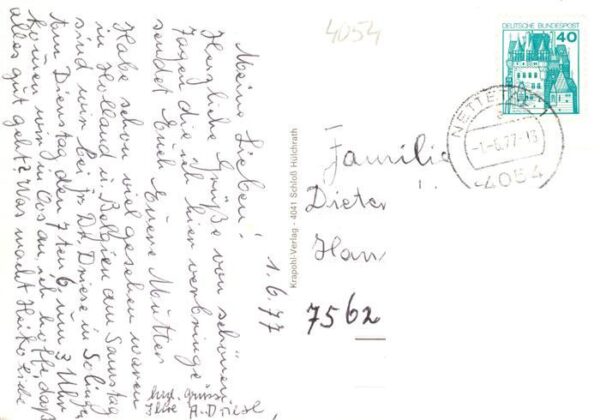 Meine Lieben!
1.6.77
Herzliche Grüße von schönen
Tagen die ich hier verbringe
sendet Euch Eure Mutter
Habe schon viel gesehen waren
in Holland u. Belgien am Samstag
sind wir bei Driese in
Am Dienstag den 7ten 6. um 3 Uhr
kommen wir in an, ich hoffe daß
alles gut geht? Was macht Heiko
herzl. grüßt
Ihre A. Driese,
Krapohl-Verlag - 4041 Schloß Hülchrath
4054
DEUTSCHE BUNDESPOST
40
NETTETAL 1
-1-6.77-18
4054
Familie
Dieter
Han
7562